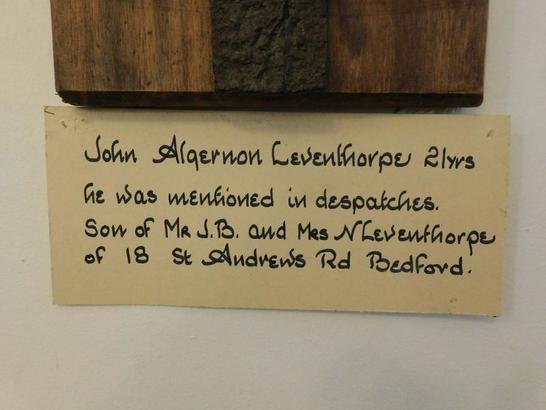 John Algernon Leventhorpe 21yrs
he was mentioned in despatches.
Son of Mr J.B. and Mrs N Leventhorpe
of 18 St Andrews Rd Bedford.